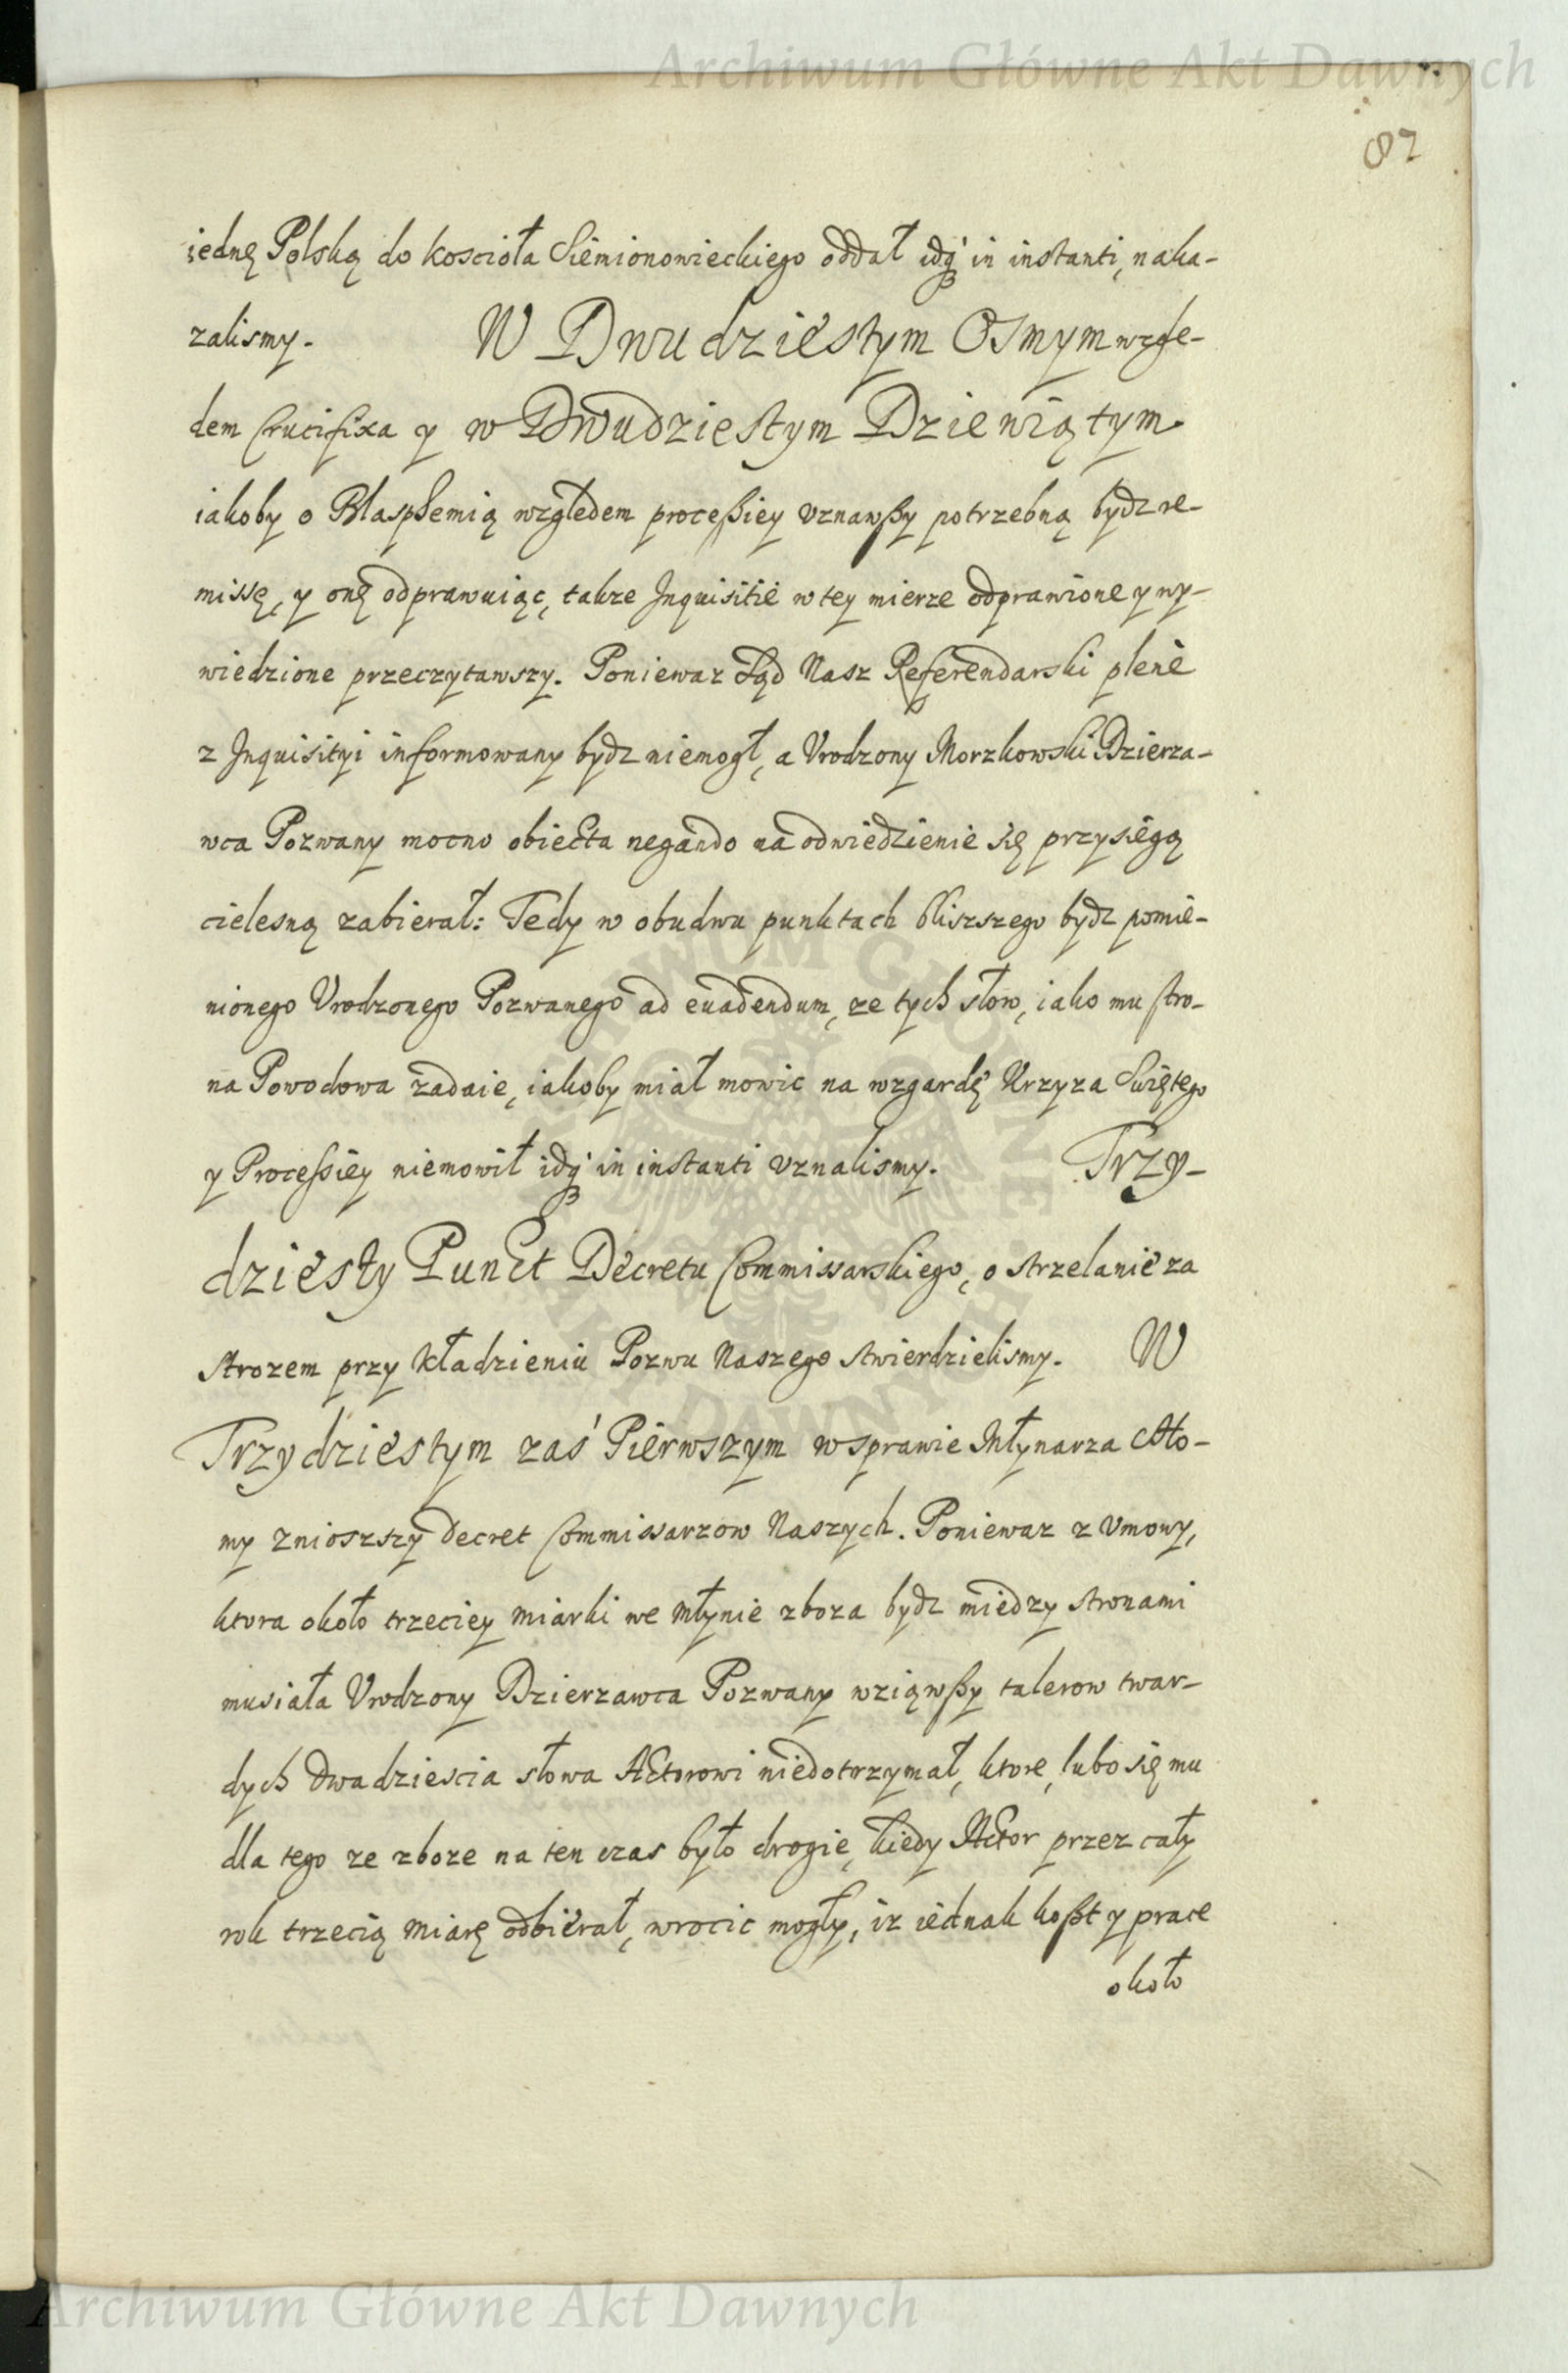 Archiwum Główne Akt Dawnych
87
iednę Polską do koscioła Siemionowieckiego oddał idģ in instanti, naka-
zalismy. W Dwudziestym Osmym wzglę-
dem Crucifixa y w Dwudziestym Dziewiątym
iakoby o Blasphemią względem proceßiey vznawßy potrzebną bydz re-
missę, y onę odprawuiąc, także Inquisitie w tey mierze odprawione y wy-
wiedzione przeczytawszy. Poniewaz Sąd Nasz Referendarski plenè
z Inquisityi informowany bydz niemogł, a Vrodzony Morzkowski Dzierza-
wca Pozwany mocno obiecta negando na odwiedzienie się przysięgą
cielesną zabierał: Tedy w obudwu punktach bliszszego bydz pomie-
nionego Vrodzonego Pozwanego ad euadendum, ze tych słow, iako mu stro-
na Powodowa zadaie, iakoby miał mowic na wzgardę Krzyza Swiętego
y Proceßiey niemowił idģ in instanti vznalismy. Trzy-
dziesty Punct Decretu Commissarskiego, o strzelanie za
strozem przy kładzieniu Pozwu Naszego stwierdzielismy. W
Trzydziestym zaś Pierwszym w sprawie Młynarza Sto-
my zniozszy decret Commissarzow Naszych. Poniewaz z vmowy,
ktora około trzeciey miarki we młynie zboza bydz miedzy stronami
musiała Vrodzony Dzierzawca Pozwany wziąwßy talerow twar-
dych dwadziescia słowa Actorowi niedotrzymał, ktore, lubo się mu
dla tego ze zboze na ten czas było drogie, kiedy Actor przez cały
rok trzecią miarę odbierał, wrocic mogły, iz iednak koßt y prace
około
ARCHIWUM GŁÓWNE AKT DAWNYCH
Archiwum Główne Akt Dawnych